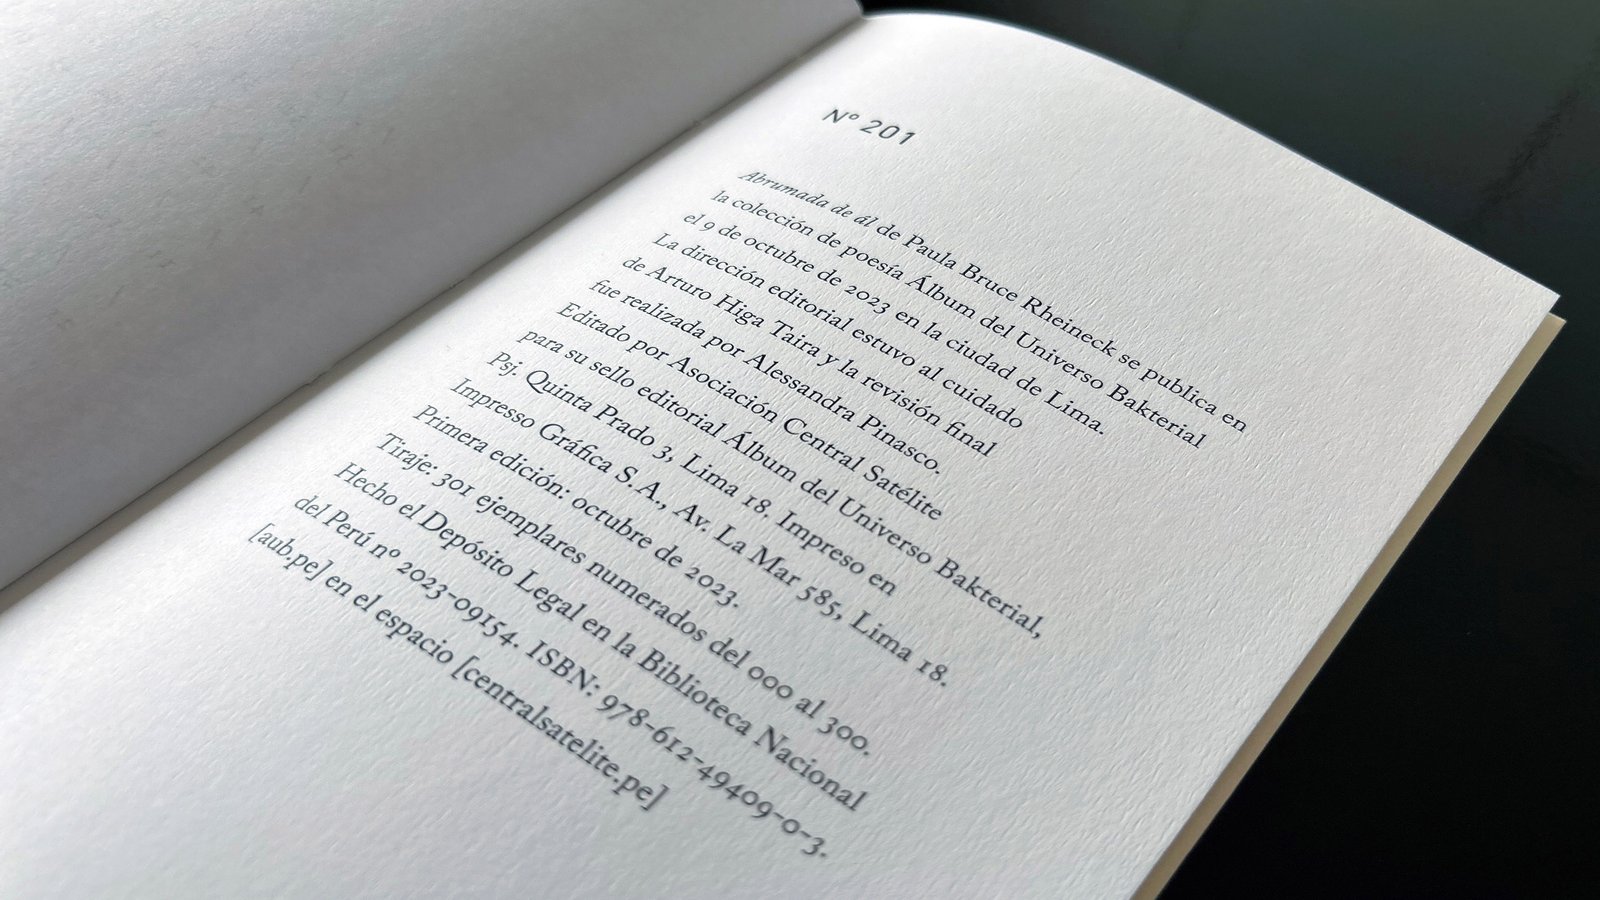 Nº 201
Abrumada de ál de Paula Bruce Rheineck se publica en
la colección de poesía Álbum del Universo Bakterial
el 9 de octubre de 2023 en la ciudad de Lima.
La dirección editorial estuvo al cuidado
de Arturo Higa Taira y la revisión final
fue realizada por Alessandra Pinasco.
Editado por Asociación Central Satélite
para su sello editorial Álbum del Universo Bakterial,
Psj. Quinta Prado 3, Lima 18. Impreso en
Impresso Gráfica S.A., Av. La Mar 585, Lima 18.
Primera edición: octubre de 2023.
Tiraje: 301 ejemplares numerados del 000 al 300.
Hecho el Depósito Legal en la Biblioteca Nacional
del Perú nº 2023-09154. ISBN: 978-612-49409-0-3.
[aub.pe] en el espacio [centralsatelite.pe]